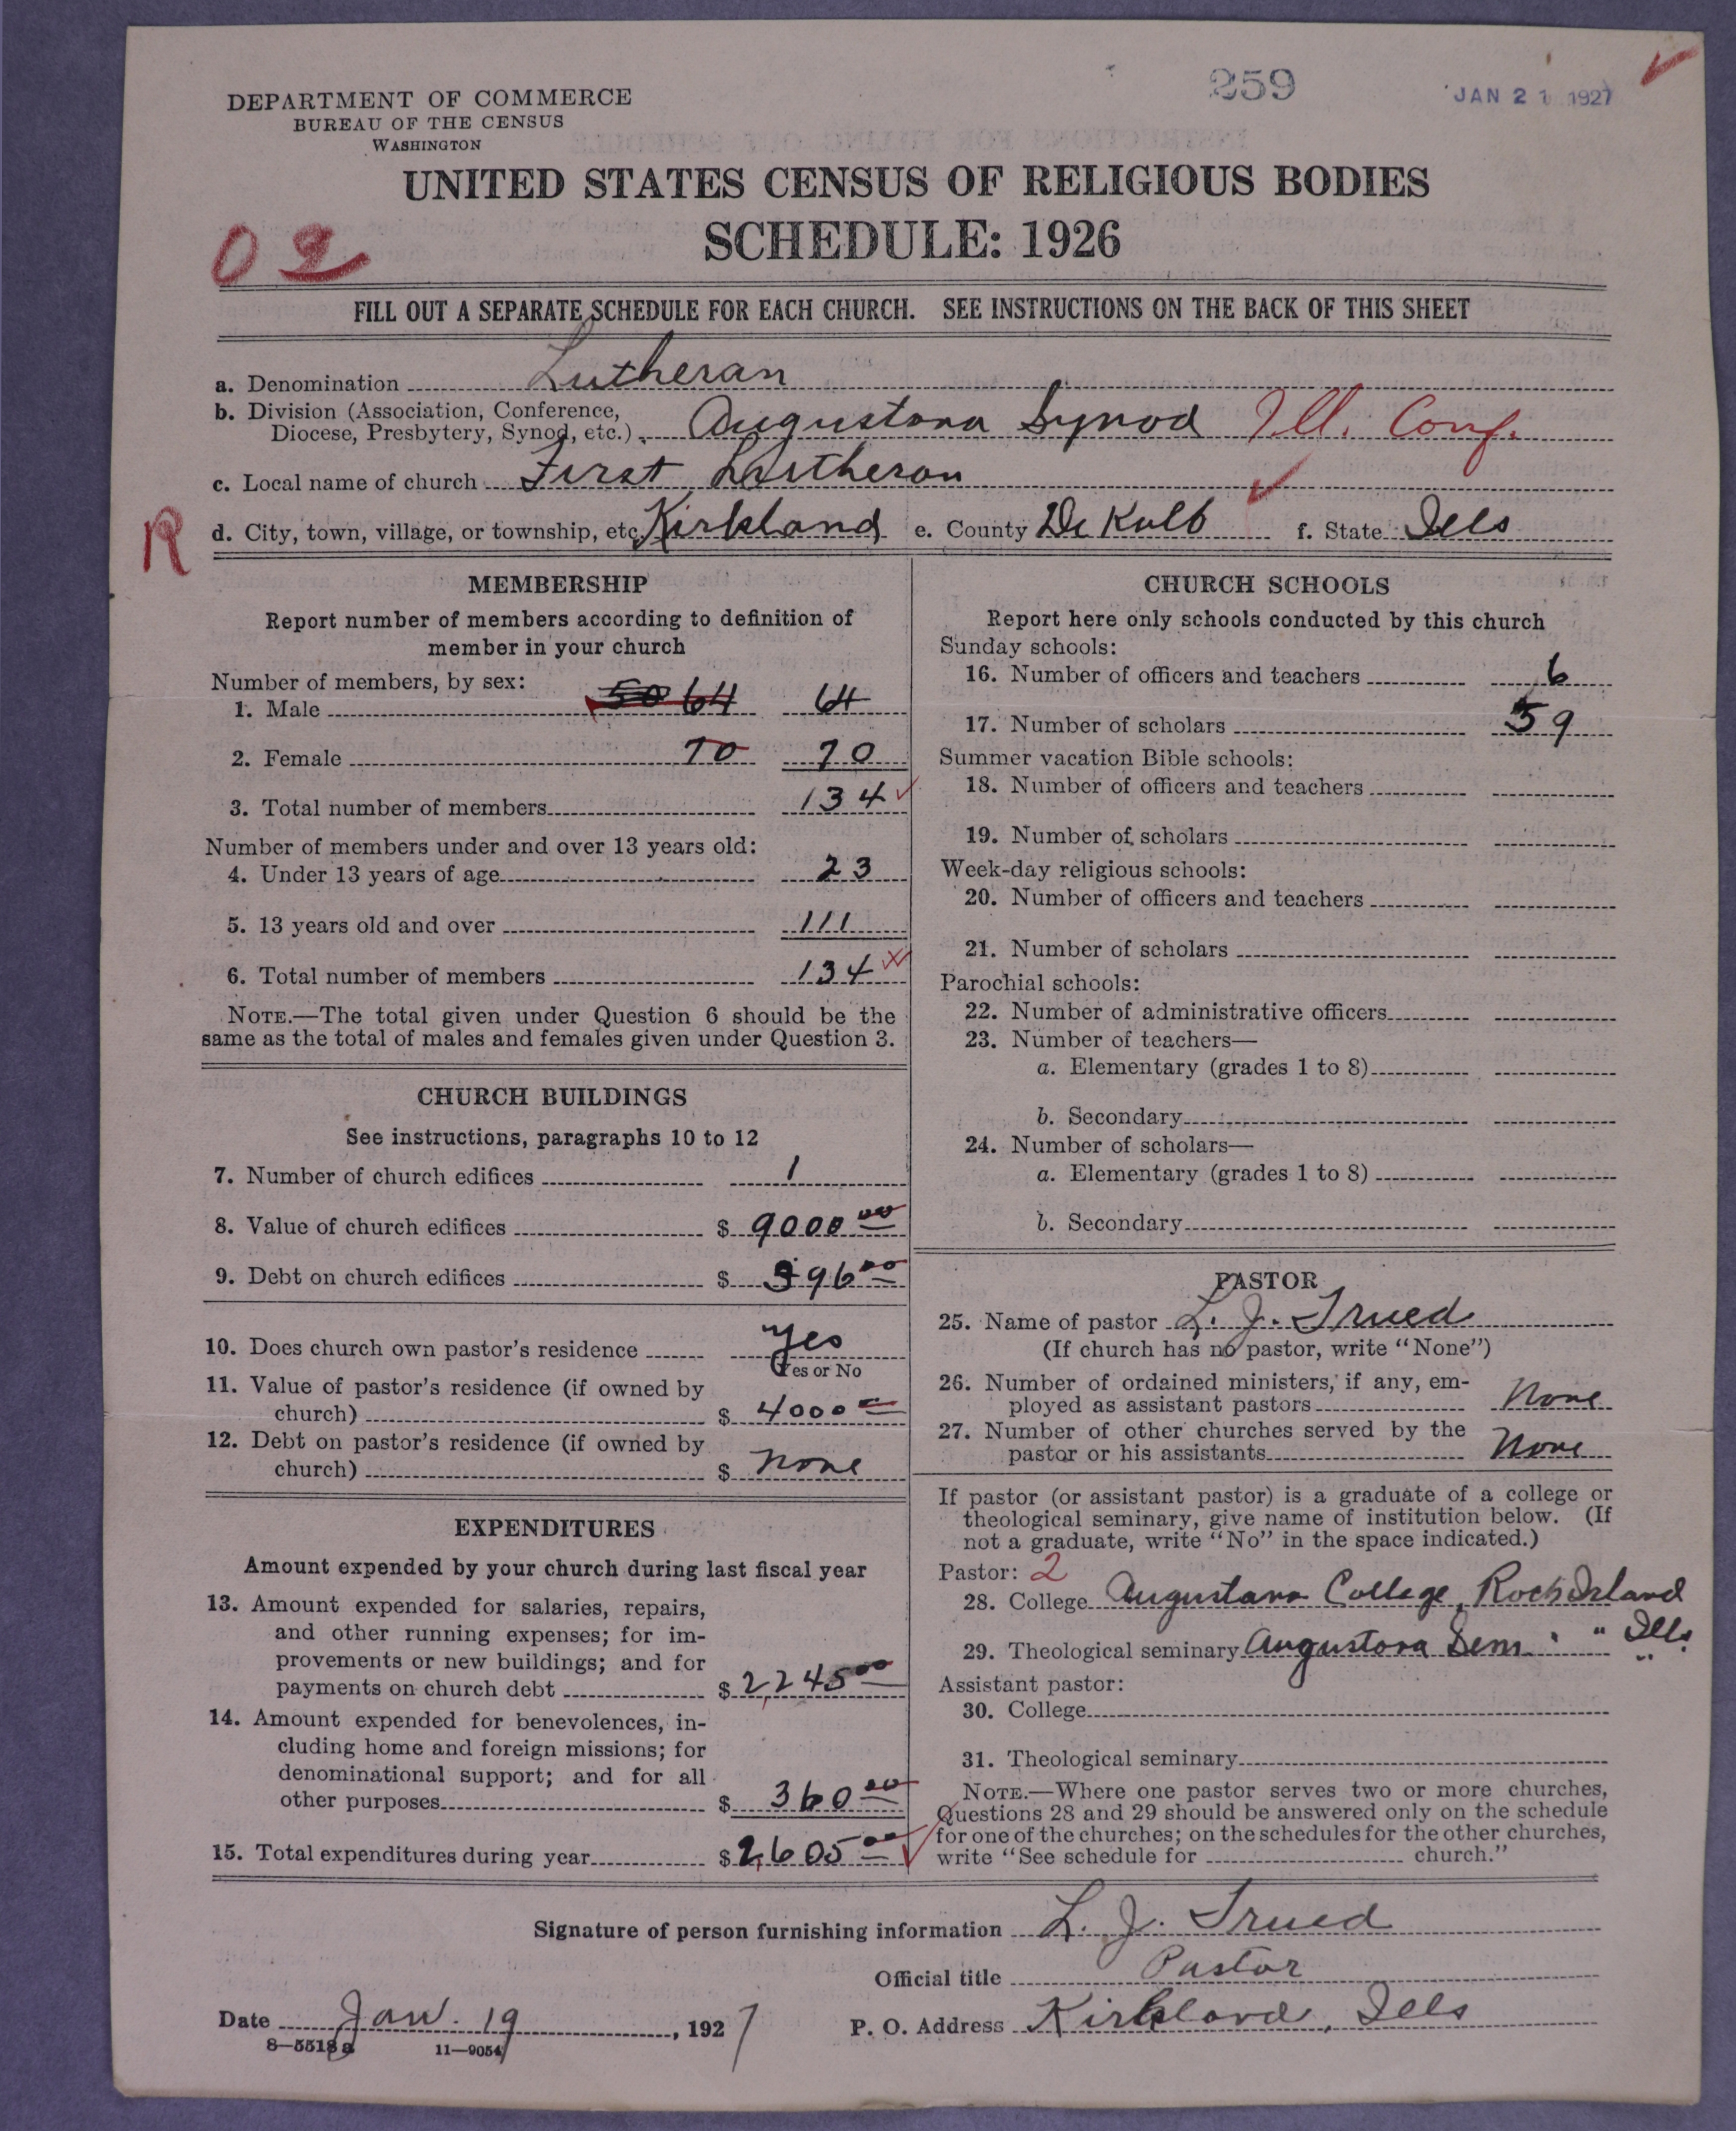 259
JAN 21 1927
DEPARTMENT OF COMMERCE
BUREAU OF THE CENSUS
WASHINGTON
UNITED STATES CENSUS OF RELIGIOUS BODIES
SCHEDULE: 1926
02
FILL OUT A SEPARATE SCHEDULE FOR EACH CHURCH. SEE INSTRUCTIONS ON THE BACK OF THIS SHEET
a. Denomination Lutheran
b. Division (Association, Conference,
Diocese, Presbytery, Synod, etc.) Augustana Synod Ill. Conf.
c. Local name of church First Lutheran
R
d. City, town, village, or township, etc. Kirkland e. County De Kalb f. State Ills
MEMBERSHIP
Report number of members according to definition of
member in your church
Number of members, by sex:
1. Male 50 64 64
2. Female 70 70
3. Total number of members 134
Number of members under and over 13 years old:
4. Under 13 years of age 23
5. 13 years old and over 111
6. Total number of members 134
NOTE.—The total given under Question 6 should be the
same as the total of males and females given under Question 3.
CHURCH BUILDINGS
See instructions, paragraphs 10 to 12
7. Number of church edifices 1
8. Value of church edifices $ 9000 00
9. Debt on church edifices $ 396 00
10. Does church own pastor's residence Yes
Yes or No
11. Value of pastor's residence (if owned by
church) $ 4000
12. Debt on pastor's residence (if owned by
church) $ None
EXPENDITURES
Amount expended by your church during last fiscal year
13. Amount expended for salaries, repairs,
and other running expenses; for im-
provements or new buildings; and for
payments on church debt $ 2,245 00
14. Amount expended for benevolences, in-
cluding home and foreign missions; for
denominational support; and for all
other purposes $ 360 00
15. Total expenditures during year $ 2,605 00
CHURCH SCHOOLS
Report here only schools conducted by this church
Sunday schools:
16. Number of officers and teachers 6
17. Number of scholars 59
Summer vacation Bible schools:
18. Number of officers and teachers
19. Number of scholars
Week-day religious schools:
20. Number of officers and teachers
21. Number of scholars
Parochial schools:
22. Number of administrative officers
23. Number of teachers—
a. Elementary (grades 1 to 8)
b. Secondary
24. Number of scholars—
a. Elementary (grades 1 to 8)
b. Secondary
PASTOR
25. Name of pastor L. J. Trued
(If church has no pastor, write "None")
26. Number of ordained ministers, if any, em-
ployed as assistant pastors None
27. Number of other churches served by the
pastor or his assistants None
If pastor (or assistant pastor) is a graduate of a college or
theological seminary, give name of institution below. (If
not a graduate, write "No" in the space indicated.)
Pastor: 2
28. College Augustana College, Rock Island
Ills.
29. Theological seminary Augustana Sem. " "
Assistant pastor:
30. College
31. Theological seminary
NOTE.—Where one pastor serves two or more churches,
Questions 28 and 29 should be answered only on the schedule
for one of the churches; on the schedules for the other churches,
write "See schedule for church."
Signature of person furnishing information L. J. Trued
Official title Pastor
Date Jan. 19, 1927 P. O. Address Kirkland, Ills
8—5518a 11—9054